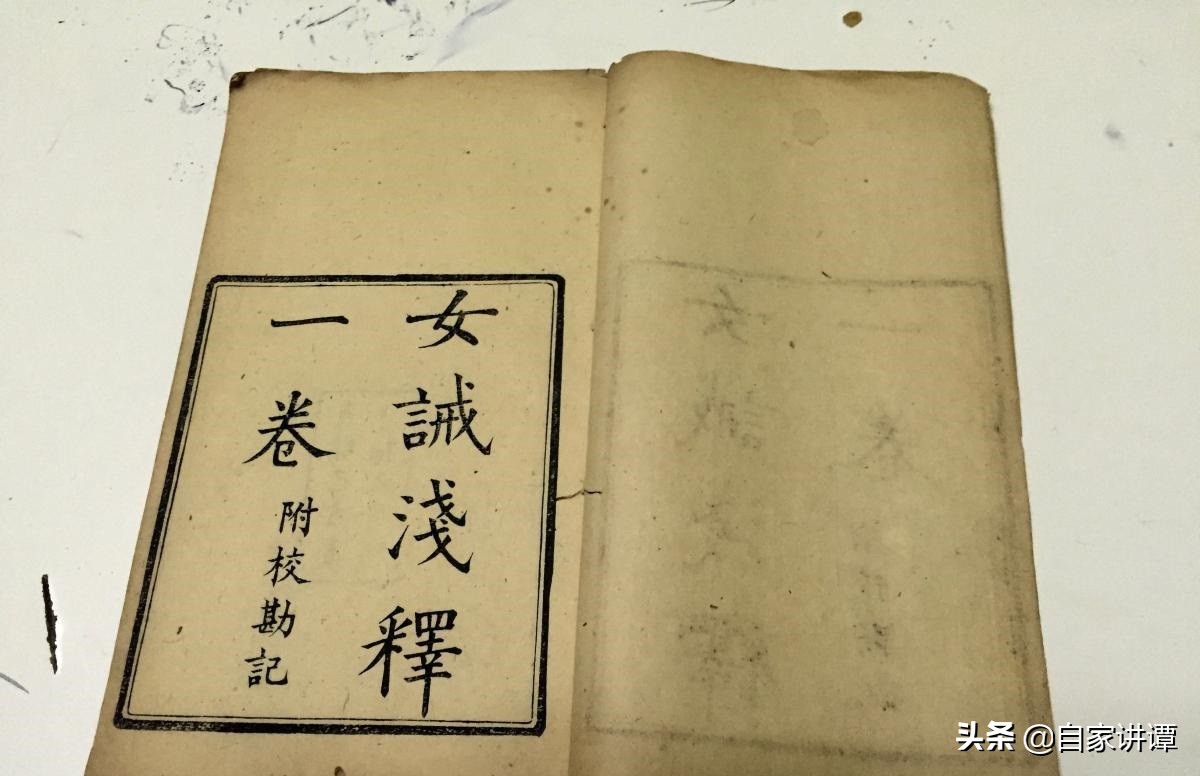 女誡淺釋
一卷附校勘記
头条 @自家讲谭